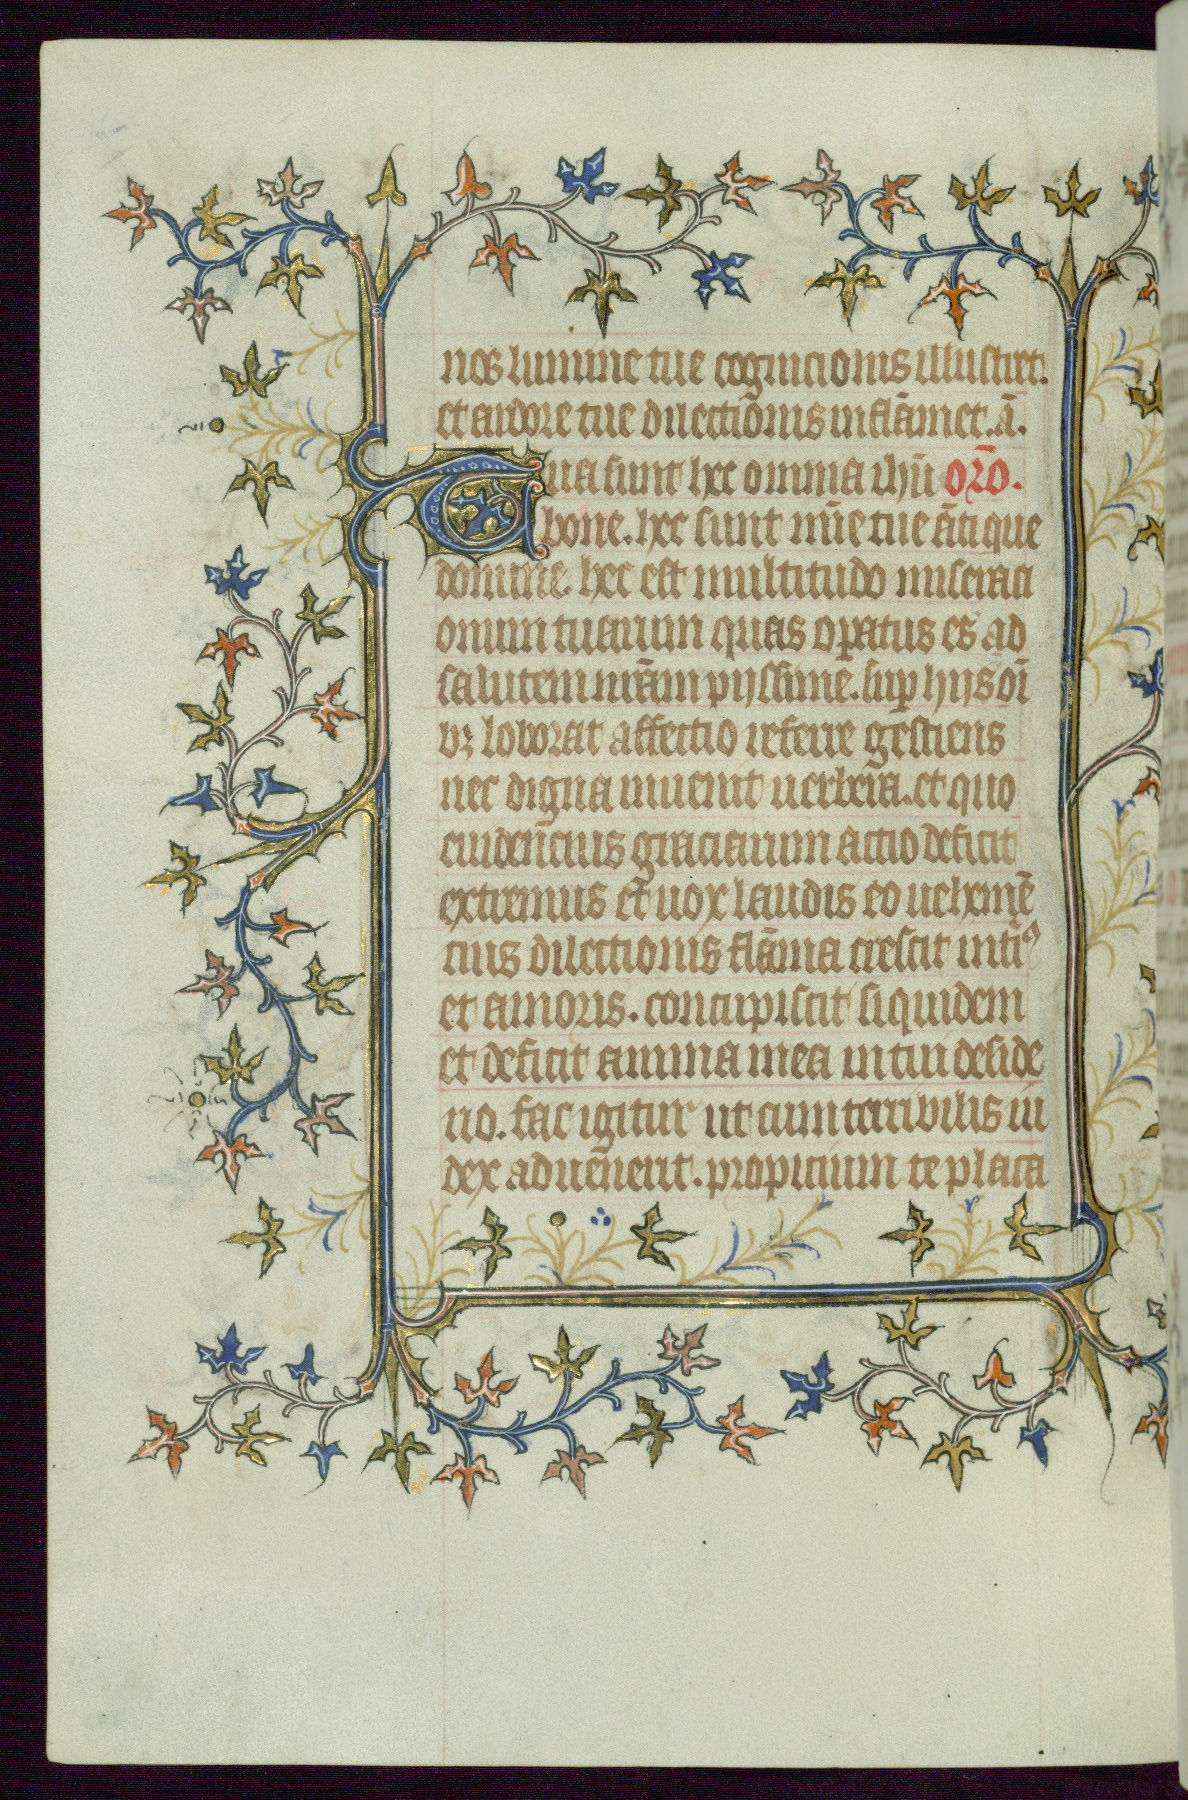 nos lumine tue cognicionis illustret.
et ardore tue dilectiõnis inflãmet. ã.
Tua sunt hec omnia ihũ orõ.
bone. hec sunt mĩe tue ãtique
domine. hec est multitudo miseraci
onum tuarum quas opatus es ad
salutem nrãm pijssime. sup hijs oĩ
bȝ laborat affectio referre gestiens
nec digna inuenit uerbera. et quo
euidẽncius graciarum actio deficit
extremus et uox laudis eo uehemẽ
cius dilectionis flãma crescit intiꝯ
et amoris. concupiscit siquidem
et deficit anima mea in tui deside
rio. fac igitur ut cum terribilis iu
dex aduẽnerit. propicium te placa